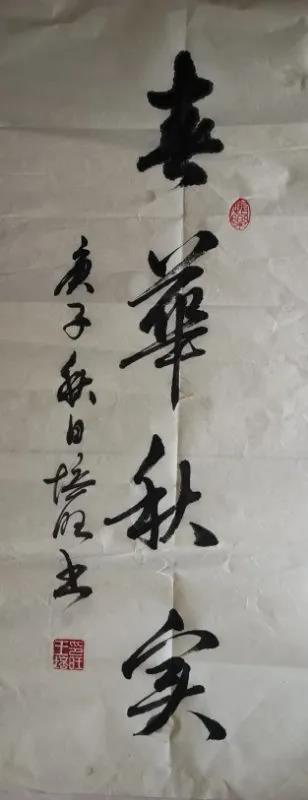 春華秋实
庚子秋日培旺书